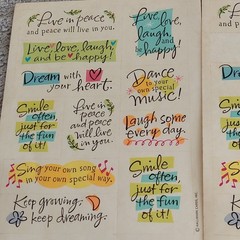 Live in peace
and peace will live in you.
Live, love, laugh
and be happy!
Dream with
your heart.
Smile
often,
just for
the fun
of it!
Live in
peace
and peace
will live
in you.
Sing your own song
in your own special way.
Keep growing,
keep dreaming.
Live,
love,
laugh
and be
happy!
Dance
to your
own special
music!
Laugh some
every day.
Smile
often,
just for
the fun
of it!